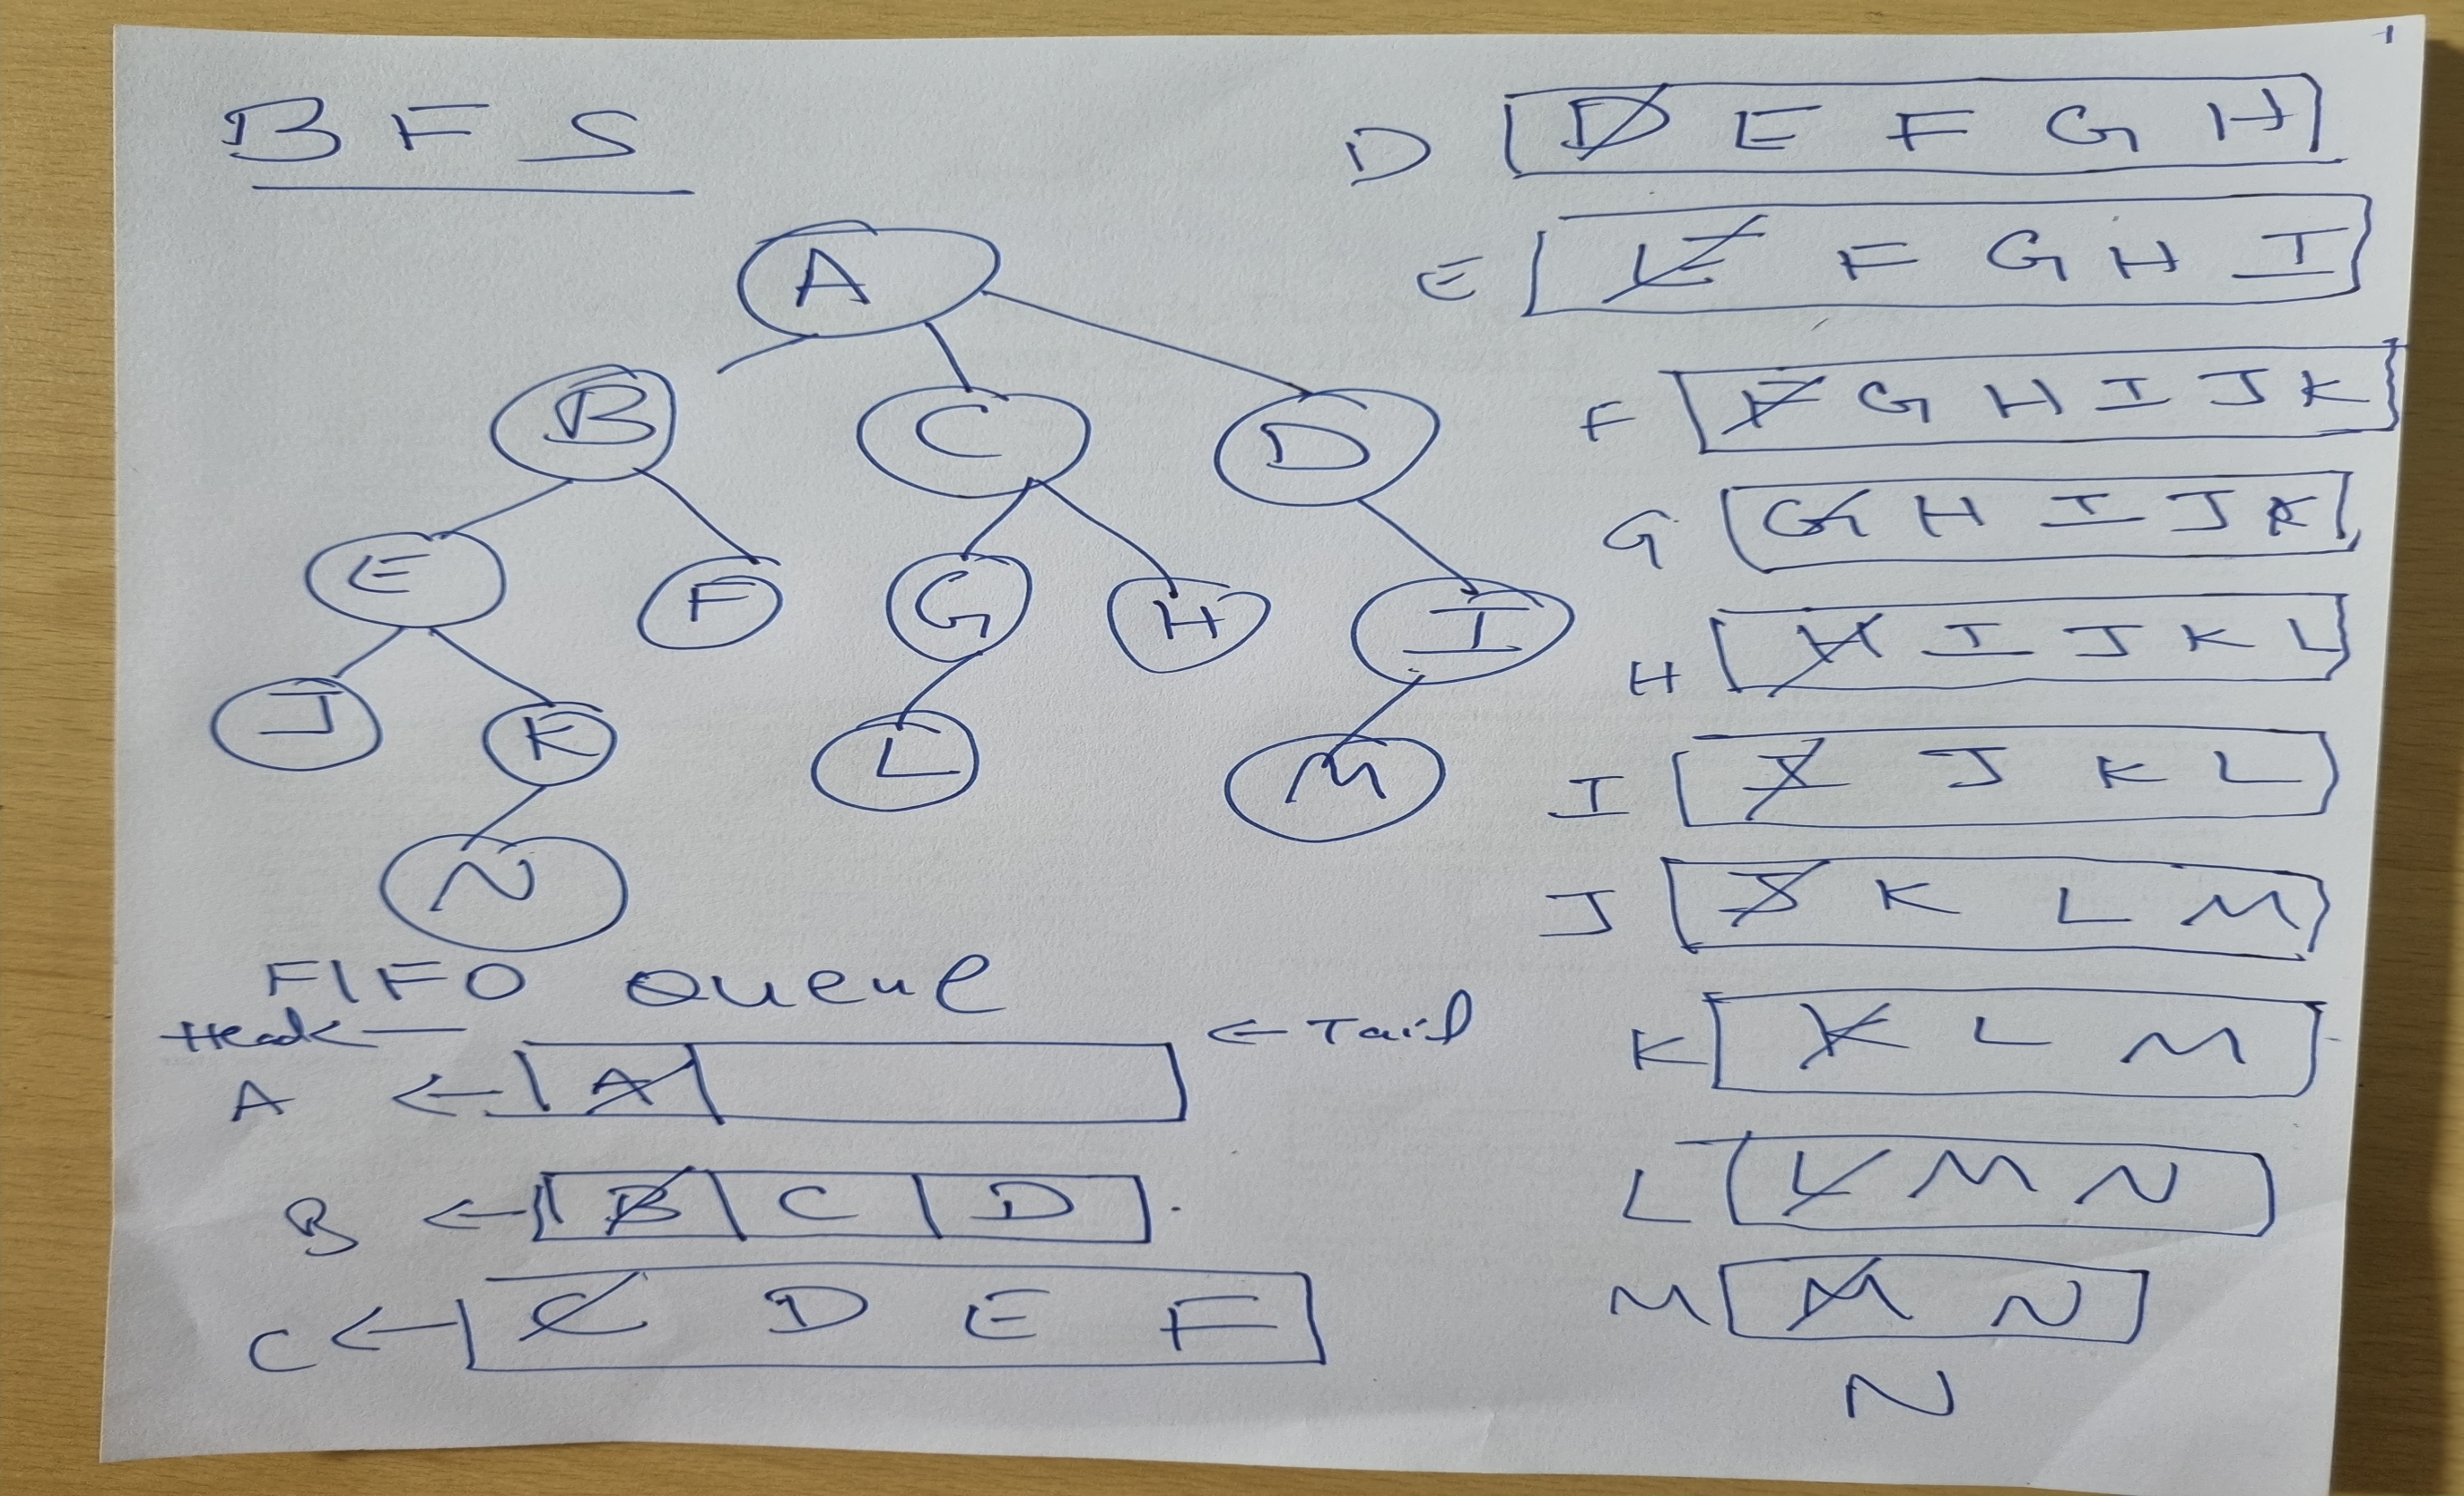 BFS
A
B C D
E F G H I
J K L M
N
FIFO Queue
Head ← ← Tail
A ← A
B ← B C D
C ← C D E F
D D E F G H
E E F G H I
F F G H I J K
G G H I J K
H H I J K L
I I J K L
J J K L M
K K L M
L L M N
M M N
N